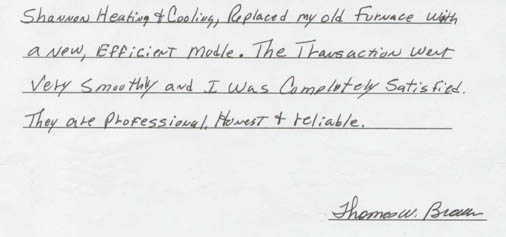 Shannon Heating & Cooling, Replaced my old Furnace with
a new, Efficient Modle. The Transaction went
Very Smoothly and I was Completely Satisfied.
They are Professional, Honest & reliable.
Thomas W. Brown